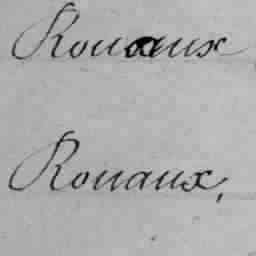 Rouaux
Rouaux,